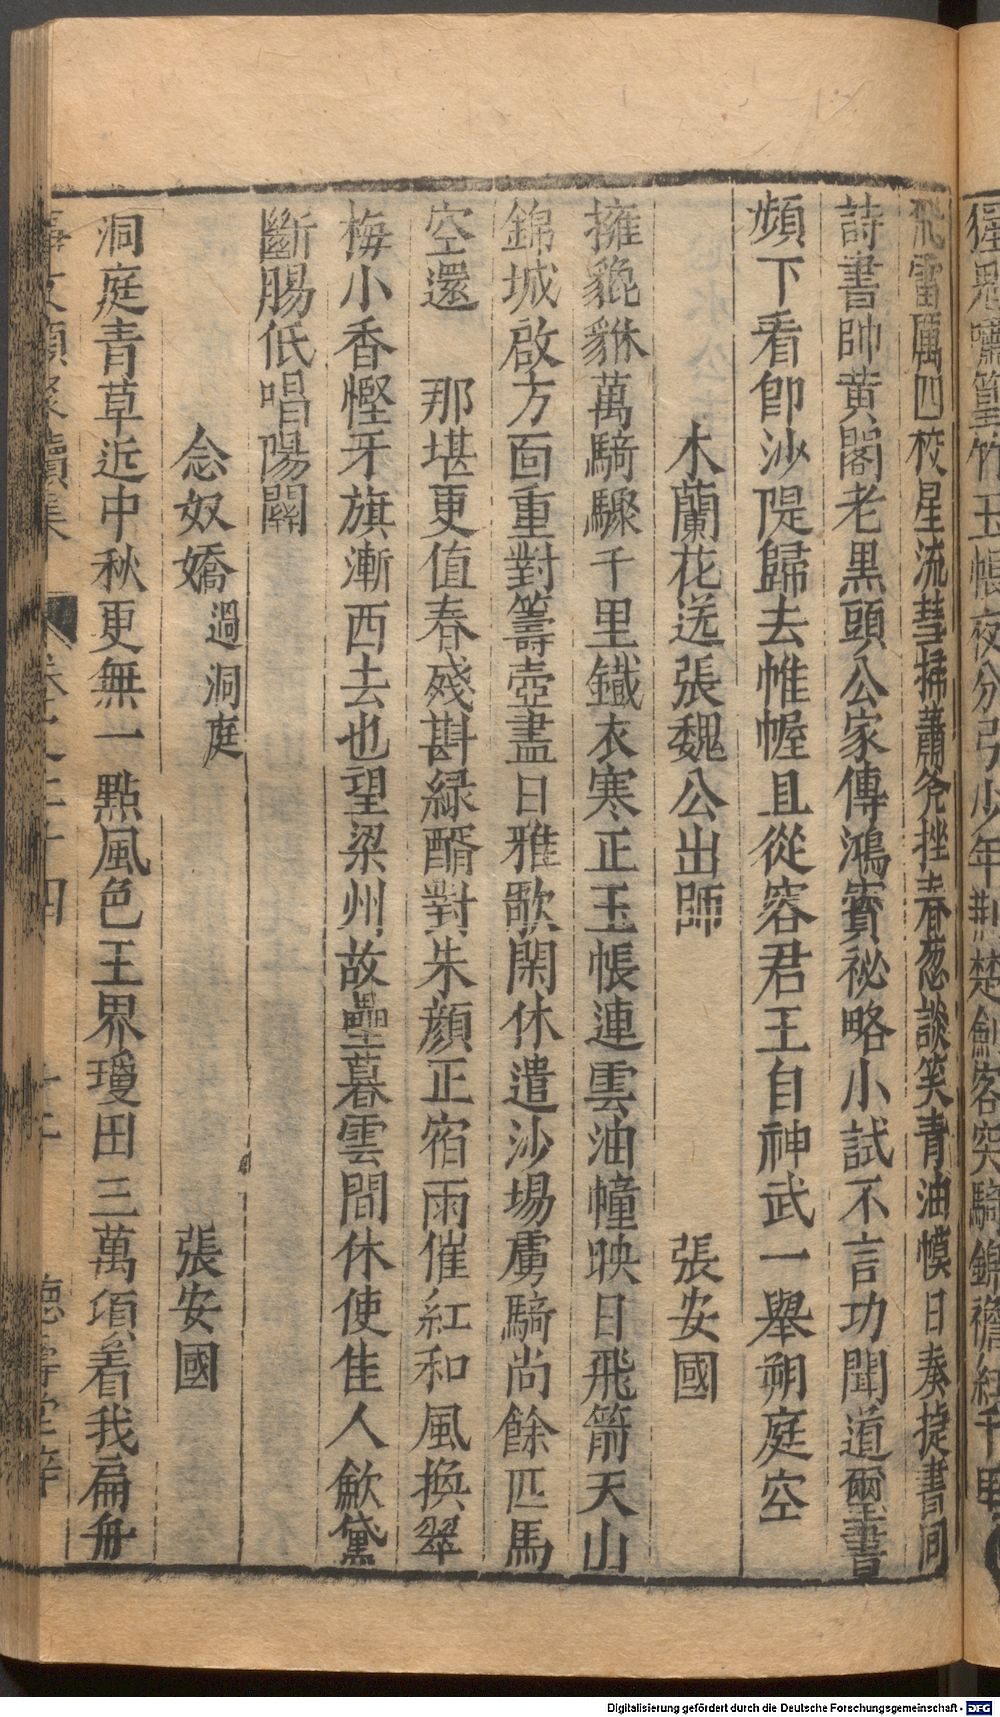 飛雷厲四校星流彗掃蕭斧挫春葱談笑青油幙日奏捷書同
詩書帥黃閣老黑頭公家傳鴻寶祕略小試不言功聞道璽書
頻下看卽沙隄歸去帷幄且從容君王自神武一舉朔庭空
木蘭花送張魏公出師　張安國
擁貔貅萬騎驟千里鐵衣寒正玉帳連雲油幢映日飛箭天山
錦城啟方面重對籌壺盡日雅歌閑休遣沙場虜騎尚餘匹馬
空還　那堪更值春殘斟綠醑對朱顏正宿雨催紅和風換翠
梅小香慳牙旗漸西去也望梁州故壘暮雲間休使佳人歛黛
斷腸低唱陽關
念奴嬌 過洞庭　張安國
洞庭青草近中秋更無一點風色王界瓊田三萬頃着我扁舟
事文類聚續集　卷之二十四　德壽堂梓
Digitalisierung gefördert durch die Deutsche Forschungsgemeinschaft - DFG